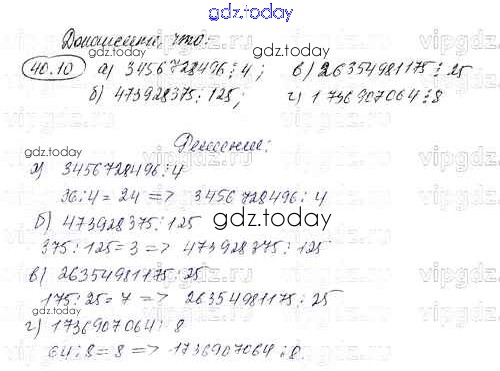 gdz.today
Доказать, что:
gdz.today
40.10 а) 3456728496⋮4; в) 26354981175⋮25
б) 473928375⋮125; г) 1736907064⋮8
gdz.today
Решение:
а) 3456728496⋮4
96:4=24 => 3456728496⋮4
б) 473928375⋮125
gdz.today
375:125=3 => 473928375⋮125
в) 26354981175⋮25
175:25=7 => 26354981175⋮25
gdz.today
г) 1736907064⋮8
64:8=8 => 1736907064⋮8